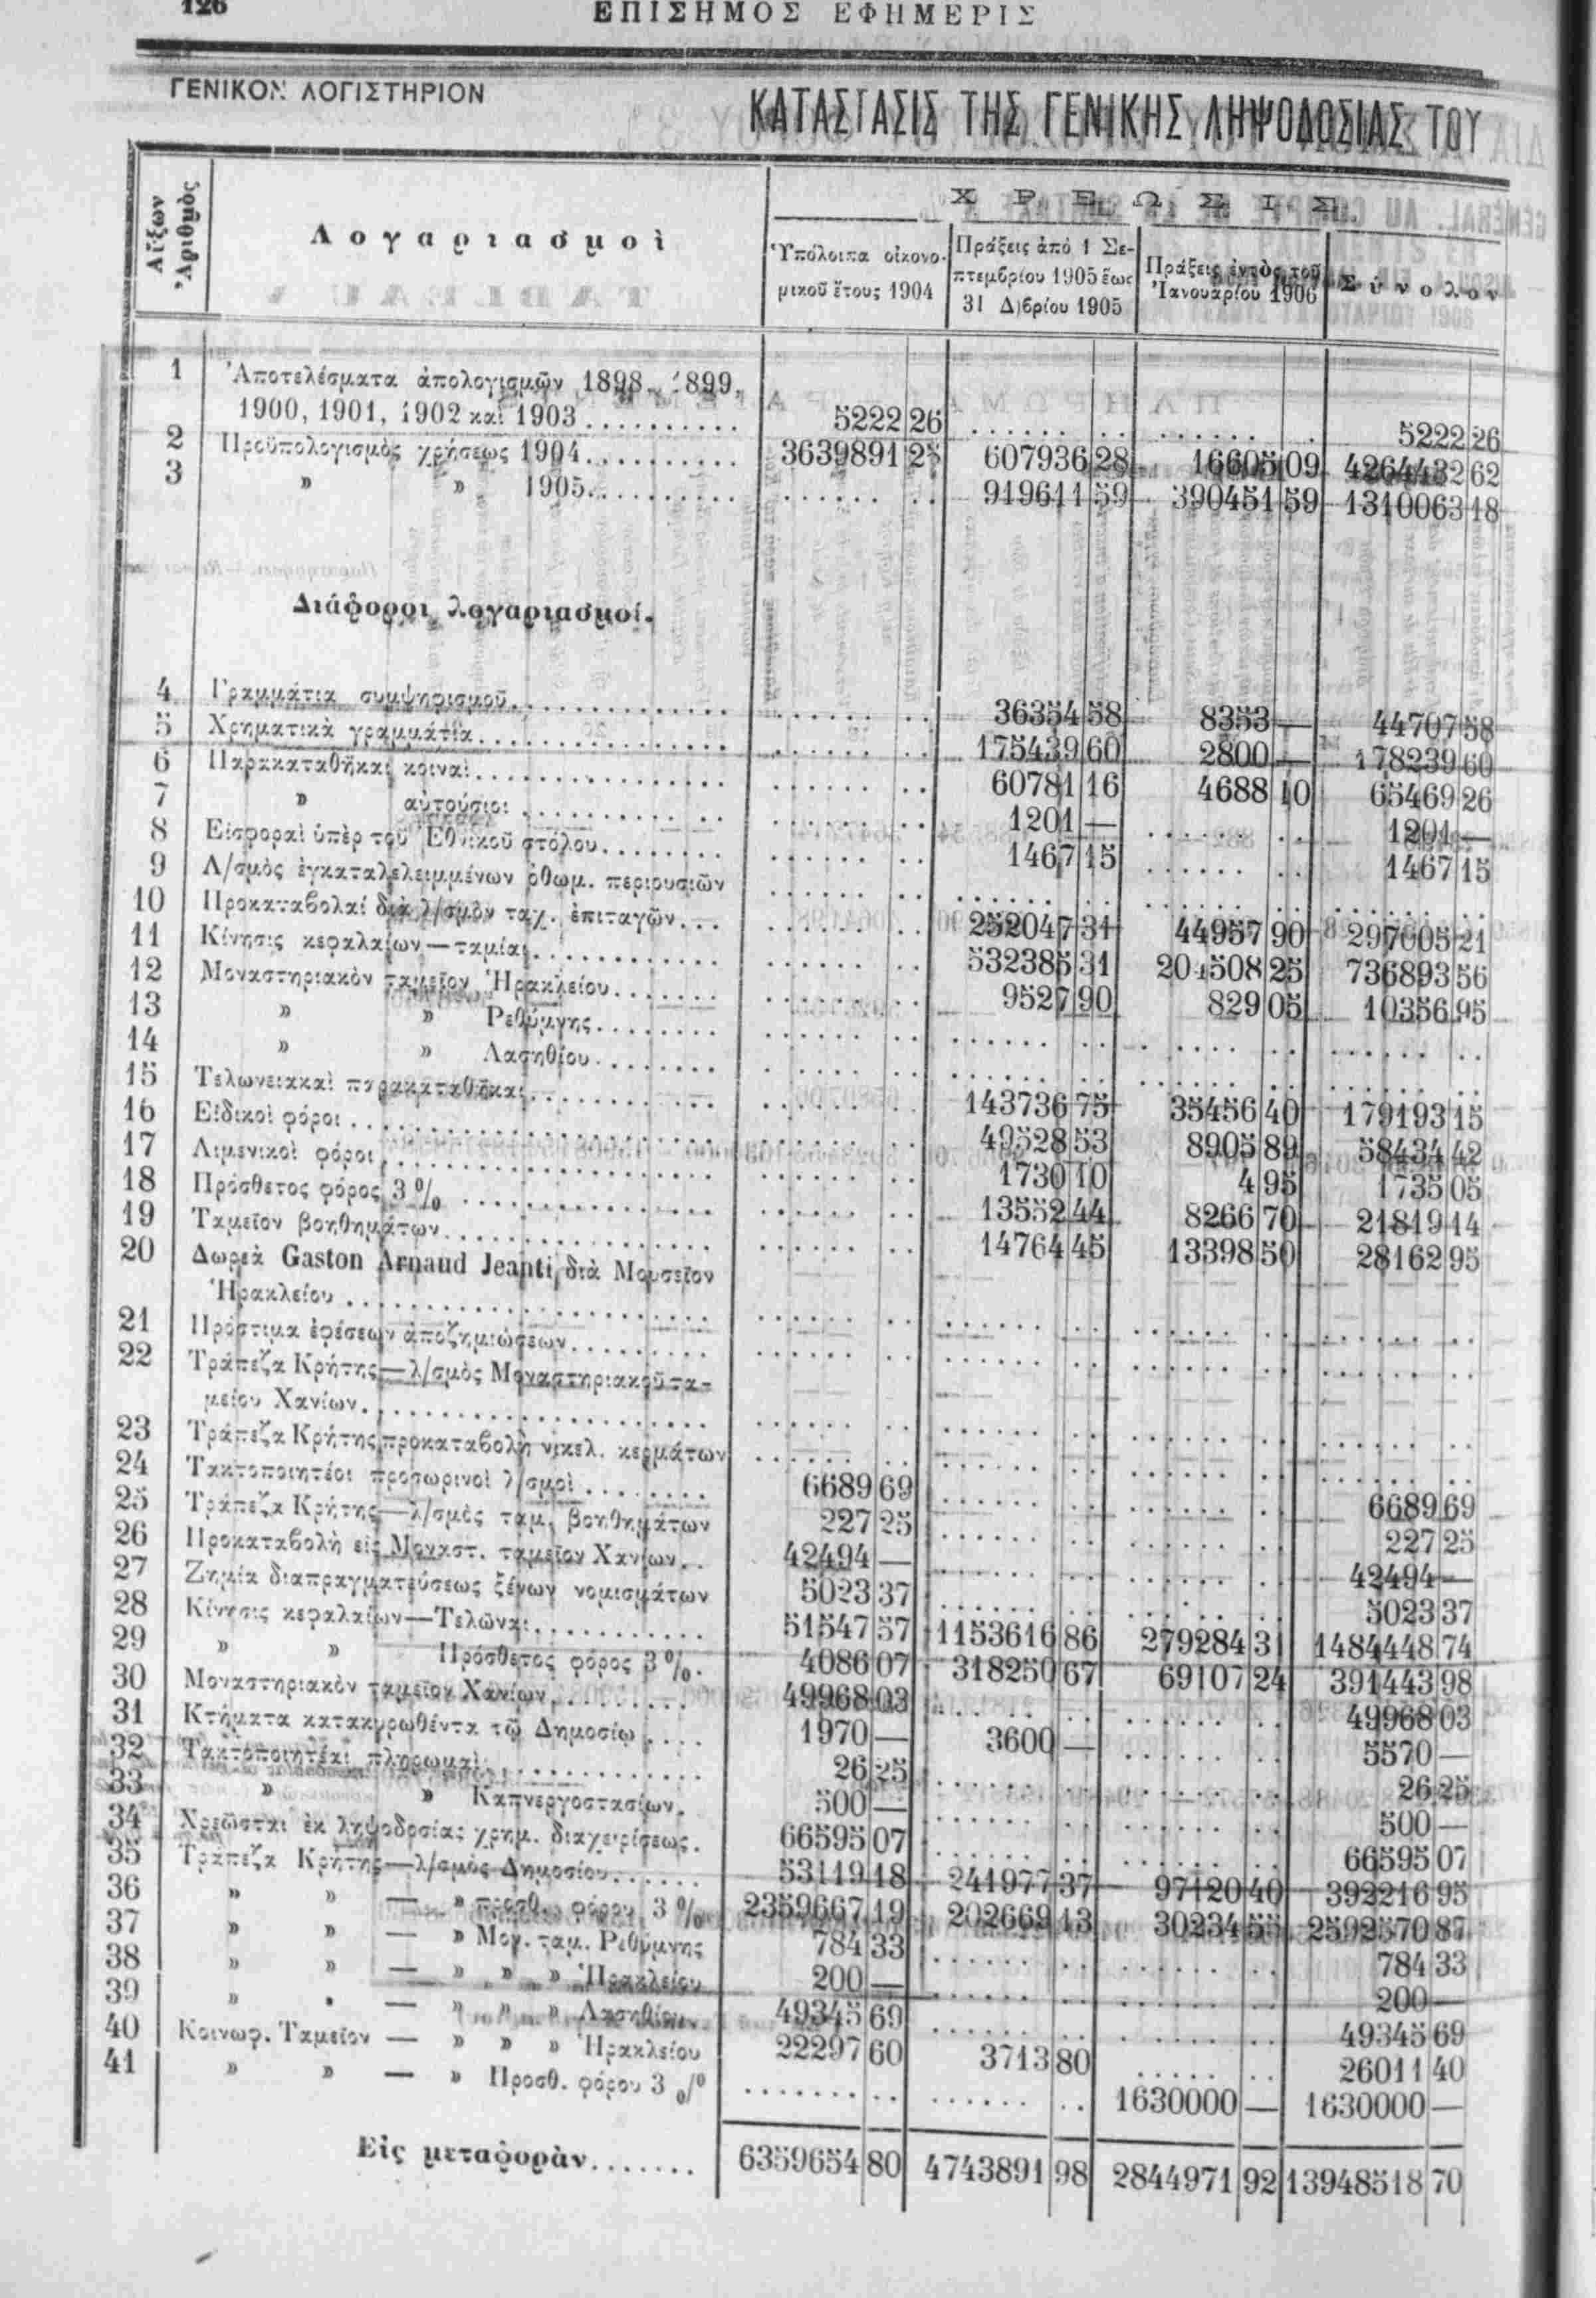 126
ΕΠΙΣΗΜΟΣ ΕΦΗΜΕΡΙΣ
ΓΕΝΙΚΟΝ ΛΟΓΙΣΤΗΡΙΟΝ
ΚΑΤΑΣΤΑΣΙΣ ΤΗΣ ΓΕΝΙΚΗΣ ΛΗΨΟΔΟΣΙΑΣ ΤΟΥ
Αὔξων Ἀριθμὸς
Λογαριασμοὶ
ΧΡΕΩΣΙΣ
Ὑπόλοιπα οἰκονο-
μικοῦ ἔτους 1904
Πράξεις ἀπὸ 1 Σε-
πτεμβρίου 1905 ἕως
31 Δ)βρίου 1905
Πράξεις ἐντὸς τοῦ
Ἰανουαρίου 1906
Σύνολον
1 Ἀποτελέσματα ἀπολογισμῶν 1898, 1899,
1900, 1901, 1902 καὶ 1903 .......... 5222 26 ...... .. ...... .. 5222 26
2 Προϋπολογισμὸς χρήσεως 1904.......... 3639891 25 607936 28 16605 09 4264432 62
3 » » 1905.......... ...... .. 919611 59 390451 59 1310063 18
Διάφοροι λογαριασμοί.
4 Γραμμάτια συμψηφισμοῦ............. ...... .. 36354 58 8353 — 44707 58
5 Χρηματικὰ γραμμάτια............... ...... .. 175439 60 2800 — 178239 60
6 Παρακαταθῆκαι κοιναὶ............... ...... .. 60781 16 4688 10 65469 26
7 » αὐτούσιοι ............ ...... .. 1201 — ...... .. 1201 —
8 Εἰσφοραὶ ὑπὲρ τοῦ Ἐθνικοῦ στόλου........ ...... .. 1467 15 ...... .. 1467 15
9 Λ/σμὸς ἐγκαταλελειμμένων ὀθωμ. περιουσιῶν ...... .. ...... .. ...... .. ...... ..
10 Προκαταβολαί διὰ λ/σμὸν ταχ. ἐπιταγῶν... ...... .. 252047 31 44957 90 297005 21
11 Κίνησις κεφαλαίων—ταμίαι............ ...... .. 532385 31 204508 25 736893 56
12 Μοναστηριακὸν ταμεῖον Ἡρακλείου....... ...... .. 9527 90 829 05 10356 95
13 » » Ρεθύμνης........ ...... .. ...... .. ...... .. ...... ..
14 » » Λασηθίου........ ...... .. ...... .. ...... .. ...... ..
15 Τελωνειακαὶ παρακαταθῆκαι............ ...... .. 143736 75 35456 40 179193 15
16 Εἰδικοὶ φόροι...................... ...... .. 49528 53 8905 89 58434 42
17 Λιμενικοὶ φόροι.................... ...... .. 1730 10 4 95 1735 05
18 Πρόσθετος φόρος 3 % ............... ...... .. 13552 44 8266 70 21819 14
19 Ταμεῖον βοηθημάτων................ ...... .. 14764 45 13398 50 28162 95
20 Δωρεὰ Gaston Arnaud Jeanti, διὰ Μουσεῖον
Ἡρακλείου ...................... ...... .. ...... .. ...... .. ...... ..
21 Πρόστιμα ἐφέσεων ἀποζημιώσεων......... ...... .. ...... .. ...... .. ...... ..
22 Τράπεζα Κρήτης—λ/σμὸς Μοναστηριακοῦ τα-
μείου Χανίων..................... ...... .. ...... .. ...... .. ...... ..
23 Τράπεζα Κρήτης προκαταβολὴ νικελ. κερμάτων ...... .. ...... .. ...... .. ...... ..
24 Τακτοποιητέοι προσωρινοὶ λ/σμοὶ ........ 6689 69 ...... .. ...... .. 6689 69
25 Τράπεζα Κρήτης—λ/σμὸς ταμ. βοηθημάτων 227 25 ...... .. ...... .. 227 25
26 Προκαταβολὴ εἰς Μοναστ. ταμεῖον Χανίων.. 42494 — ...... .. ...... .. 42494 —
27 Ζημία διαπραγματεύσεως ξένων νομισμάτων 5023 37 ...... .. ...... .. 5023 37
28 Κίνησις κεφαλαίων—Τελῶναι........... 51547 57 1153616 86 279284 31 1484448 74
29 » » Πρόσθετος φόρος 3 %. 4086 07 318250 67 69107 24 391443 98
30 Μοναστηριακὸν ταμεῖον Χανίων......... 49968 03 ...... .. ...... .. 49968 03
31 Κτήματα κατακυρωθέντα τῷ Δημοσίῳ .... 1970 — 3600 — ...... .. 5570 —
32 Τακτοποιητέαι πληρωμαὶ............. 26 25 ...... .. ...... .. 26 25
33 » » Καπνεργοστασίων. 500 — ...... .. ...... .. 500 —
34 Χρεῶσται ἐκ ληψοδοσίας χρημ. διαχειρίσεως. 66595 07 ...... .. ...... .. 66595 07
35 Τράπεζα Κρήτης—λ/σμὸς Δημοσίου...... 53119 18 241977 37 97120 40 392216 95
36 » » — » προσθ. φόρου 3 % 2359667 19 202669 13 30234 55 2592570 87
37 » » — » Μον. ταμ. Ρεθύμνης 784 33 ...... .. ...... .. 784 33
38 » » — » » » Ἡρακλείου 200 — ...... .. ...... .. 200 —
39 » . — » » » Λασηθίου. 49345 69 ...... .. ...... .. 49345 69
40 Κοινωφ. Ταμεῖον — » » » Ἡρακλείου 22297 60 3713 80 ...... .. 26011 40
41 » » — » Προσθ. φόρου 3 ₀/⁰ ...... .. ...... .. 1630000 — 1630000 —
Εἰς μεταφορὰν....... 6359654 80 4743891 98 2844971 92 13948518 70